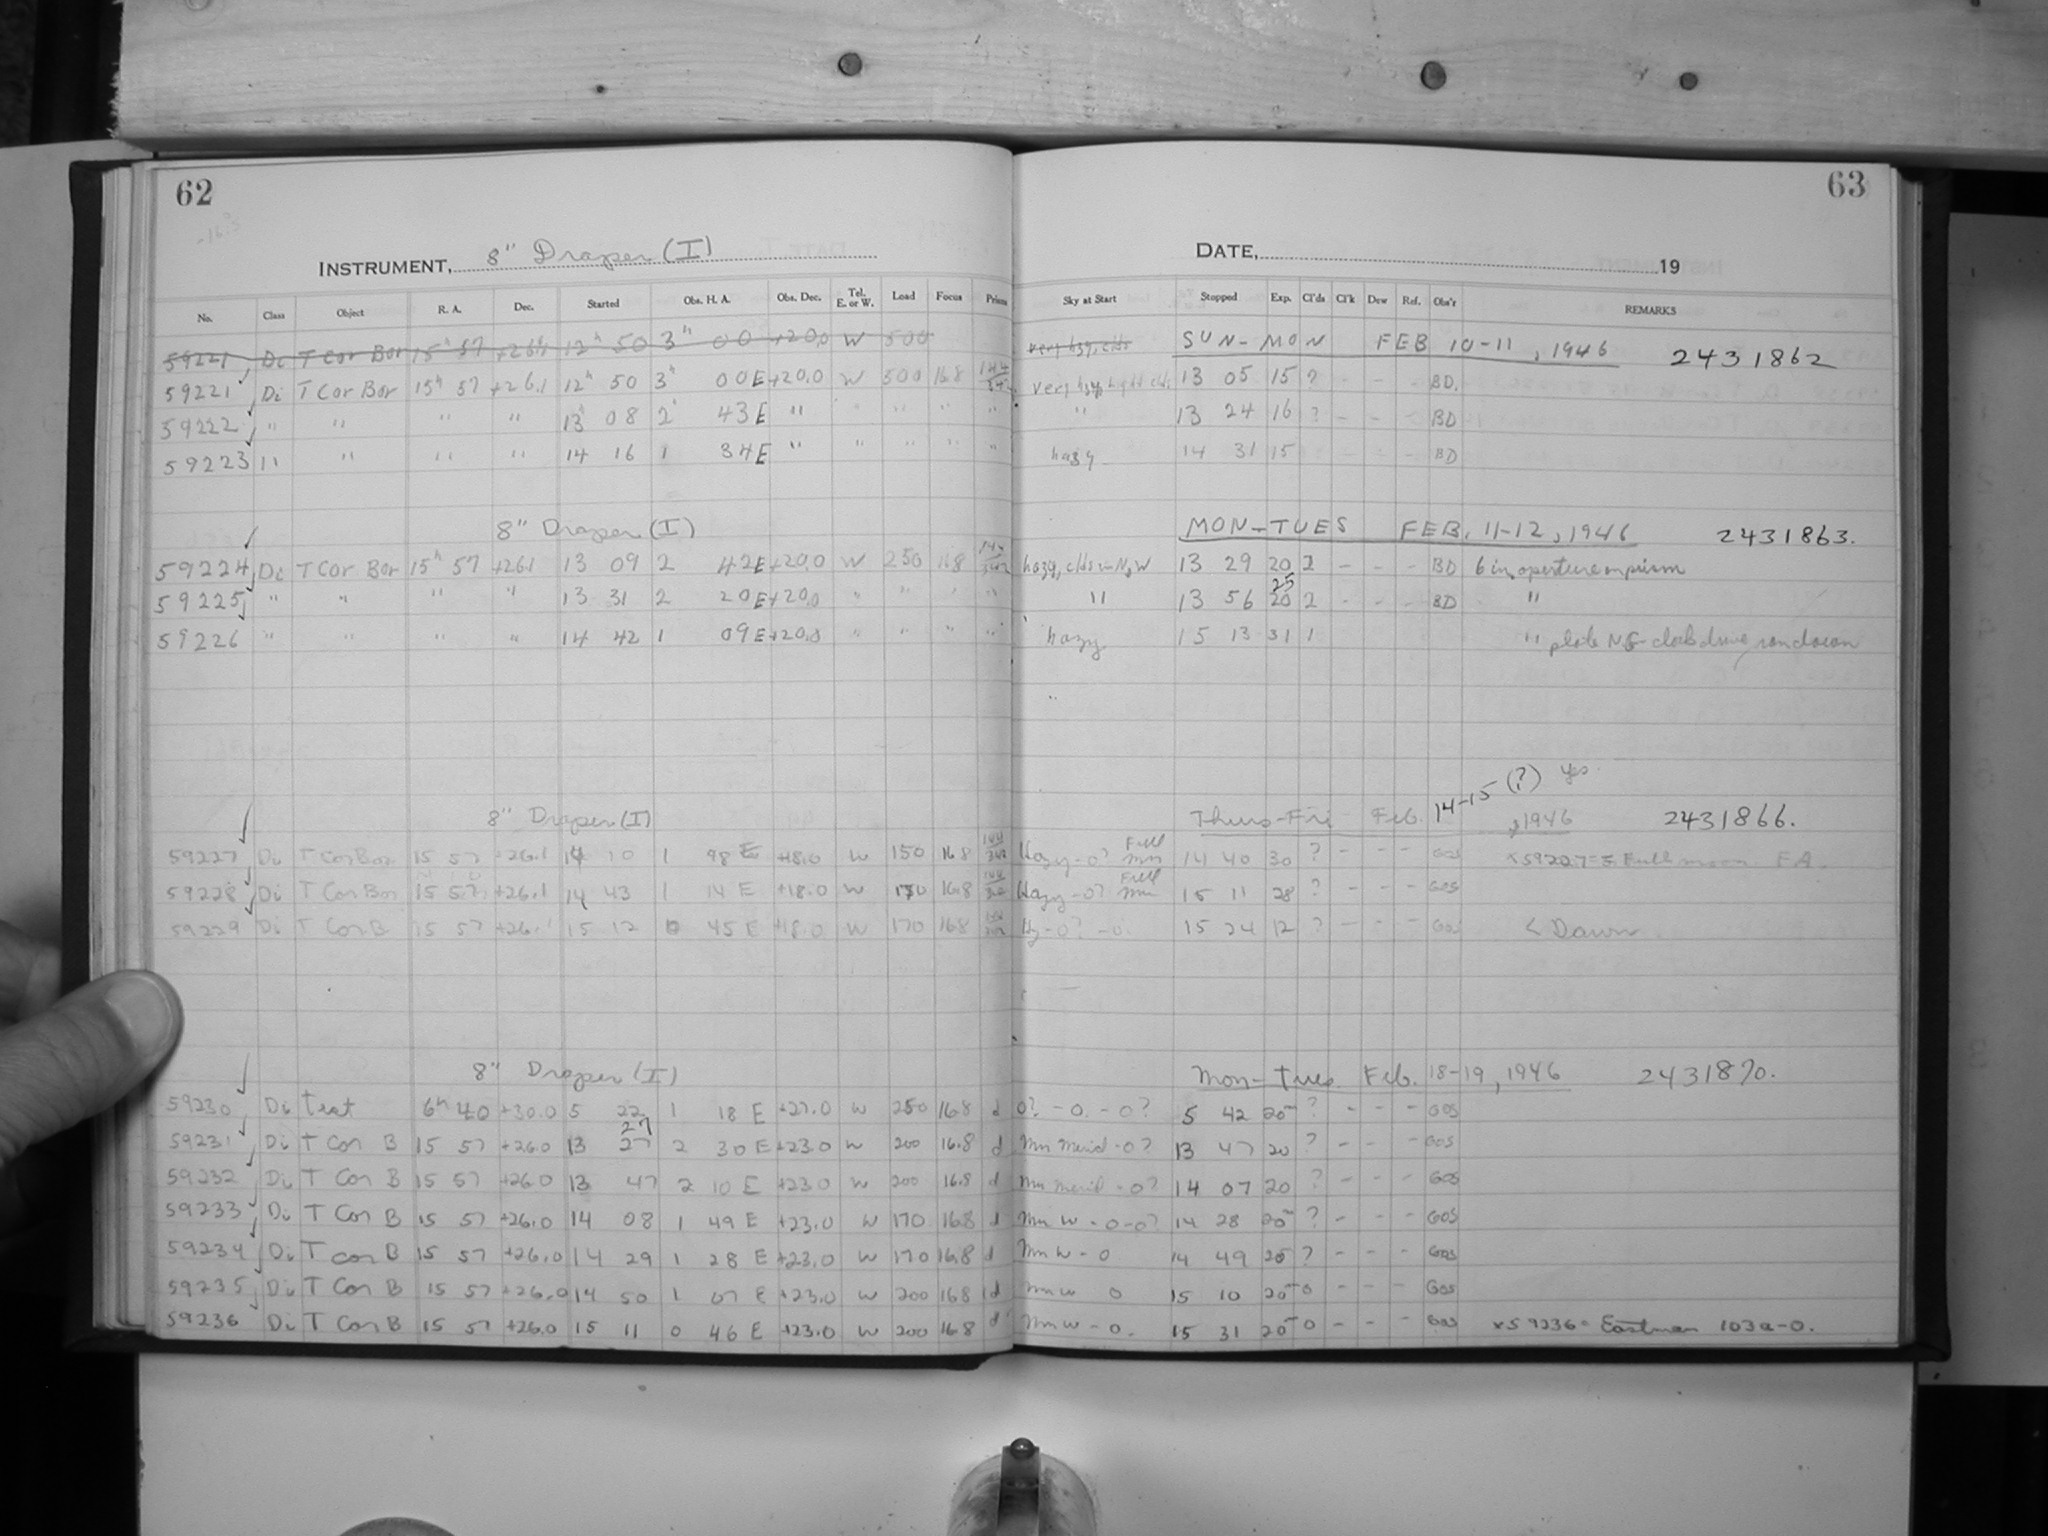 62
63
INSTRUMENT, 8" Draper (I)
DATE, 19
No. Class Object R. A. Dec. Started Obs. H. A. Obs. Dec. Tel. E. or W. Load Focus Prism Sky at Start Stopped Exp. Cl'ds Cl'k Dew Ref. Obs'r REMARKS
59221 Di T Cor Bor 15h 57 +26.1 12h 50 3h 00 +20.0 W 500 very hzy, clds SUN-MON FEB 10-11, 1946 2431862
59221 Di T Cor Bor 15h 57 +26.1 12h 50 3h 00E +20.0 W 500 16.8 very hzy light clds 13 05 15 ? - - - BD.
59222 " " " " 13h 08 2 43E " " " " " " 13 24 16 ? - - - BD
59223 11 " " " 14 16 1 34E " " " " " hazy 14 31 15 - - - BD
8" Draper (I) MON-TUES FEB. 11-12, 1946 2431863.
59224 Di T Cor Bor 15h 57 +26.1 13 09 2 42E +20.0 W 250 16.8 144/342 hazy, clds in N, W 13 29 20 2 - - - BD 6 in aperture on prism
59225 " " " " 13 31 2 20E +20.0 " " " " " 13 56 25 20 2 - - - BD "
59226 " " " " 14 42 1 09E +20.0 " " " " hazy 15 13 31 1 " plate NG - clock drive ran down
8" Draper (I) Thurs-Fri Feb. 14-15 (?) yes , 1946 2431866.
59227 Di T Cor Bor 15 57 +26.1 14 10 1 48 E +18.0 W 150 16.8 144/342 Hazy - 0? Full mn 14 40 30 ? - - - GOS Full moon
59228 Di T Cor Bor 15 57 +26.1 14 43 1 14 E +18.0 W 170 16.8 Hazy - 0? Full mn 15 11 28 ? - - - GOS
59229 Di T Cor B 15 57 +26.1 15 12 0 45 E +18.0 W 170 16.8 Hy - 0? - 0. 15 24 12 ? - - - GOS < Dawn
8" Draper (I) Mon-Tues. Feb. 18-19, 1946 2431870.
59230 Di Test 6h 40 +30.0 5 22 1 18 E +27.0 W 250 16.8 d 0? - 0. - 0? 5 42 20 ? - - - GOS
59231 Di T Cor B 15 57 +26.0 13 27 27 2 30 E +23.0 W 200 16.8 d Mn Merid - 0? 13 47 20 ? - - GOS
59232 Di T Cor B 15 57 +26.0 13 47 2 10 E +23.0 W 200 16.8 d Mn Merid - 0? 14 07 20 ? - - - GOS
59233 Di T Cor B 15 57 +26.0 14 08 1 49 E +23.0 W 170 16.8 d Mn W - 0-0? 14 28 20 ? - - - GOS
59234 Di T Cor B 15 57 +26.0 14 29 1 28 E +23.0 W 170 16.8 d Mn W - 0 14 49 20 ? - - - GOS
59235 Di T Cor B 15 57 +26.0 14 50 1 07 E +23.0 W 200 16.8 d Mn W 0 15 10 20 0 - - - GOS
59236 Di T Cor B 15 57 +26.0 15 11 0 46 E +23.0 W 200 16.8 d Mn W - 0. 15 31 20 0 - - - GOS x59236 = Eastman 103a-O.